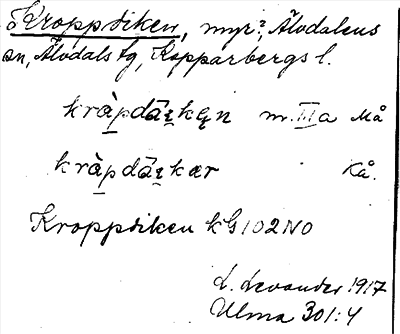 Kroppdiken, myr?, Älvdalens
sn, Älvdals tg, Kopparbergs l.
kràpdā̀ɪkęn m. IIIa Må
kràpdā̀ɪkær Kå.
Kroppdiken kG 102 NO
L. Levander 1917
Ulma 301:4